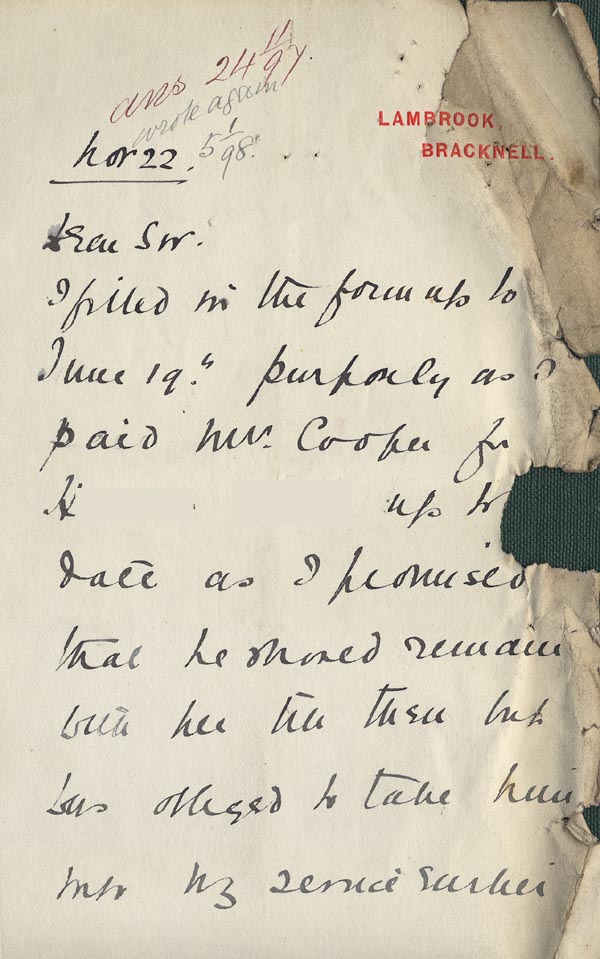 ans 24 11/97.
wrote again
5 1/98.
LAMBROOK,
BRACKNELL.
Nov 22.
Dear Sir.
I filled in the form up to
June 19th purposely as I
paid Mrs. Cooper for
H up to
date as I promised
that he should remain
with her till then but
was obliged to take him
into my service earlier